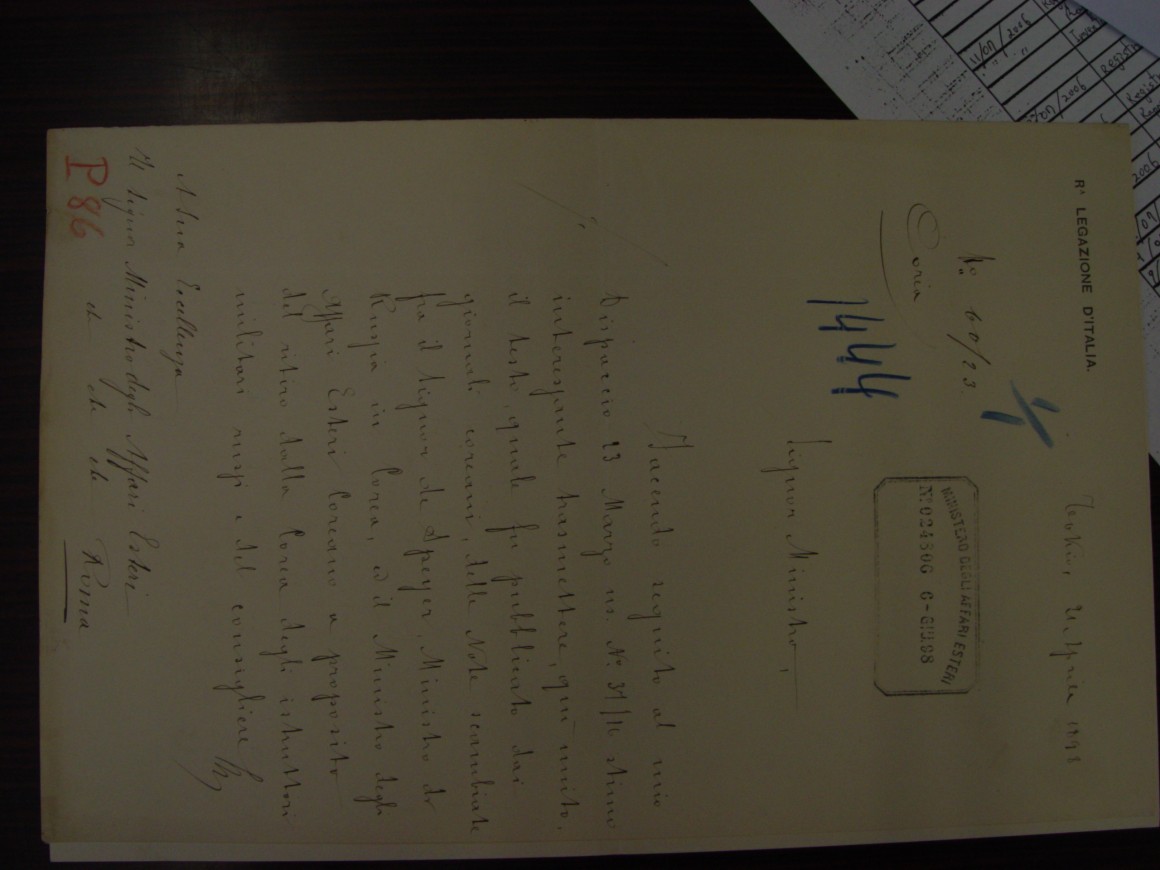 Rᴬ LEGAZIONE D'ITALIA.
Tokio, Aprile 1898
No 60/23
Corea
MINISTERO DEGLI AFFARI ESTERI
Nº 024306 6-GIU.98
1444
Signor Ministro,
Facendo seguito al mio
Dispaccio 23 Marzo us. Nº stimo
interessante trasmettere, qui unito,
il testo, quale fu pubblicato dai
giornali coreani, delle Note scambiate
fra il Signor de Speyer, Ministro di
Russia in Corea, ed il Ministro degli
Affari Esteri Coreano a proposito
del ritiro dalla Corea degli istruttori
militari russi e del consigliere
A Sua Eccellenza
Il Signor Ministro degli Affari Esteri
etc etc etc Roma
P 86
11/07/2006
2006